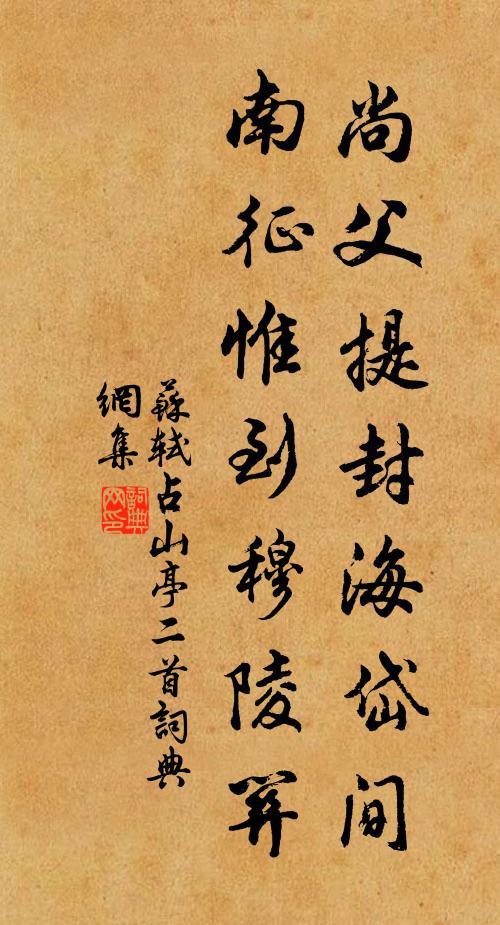 尚父提封海岱間
南征惟到穆陵關
蘇軾占山亭二首詞典
網集
詞典網印